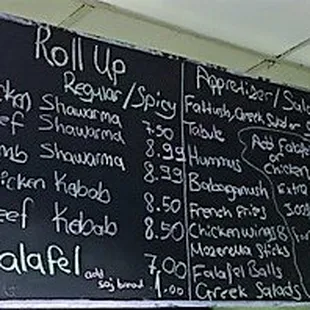 Roll Up
Regular/Spicy
cken Shawarma 7.50
eef Shawarma 8.99
mb Shawarma 8.99
icken Kabob 8.50
eef Kebab 8.50
alafel 7.00
add
saj bread 1.00
Appretizer/Sala
Fattush, Greek Salad or
Tabule
Hummus
Babaganush
French Fries
Chicken wings 8
Mozerella Sticks
Falafel Balls
Greek Salads
Add Falafe
or
Chicken
Extra
for